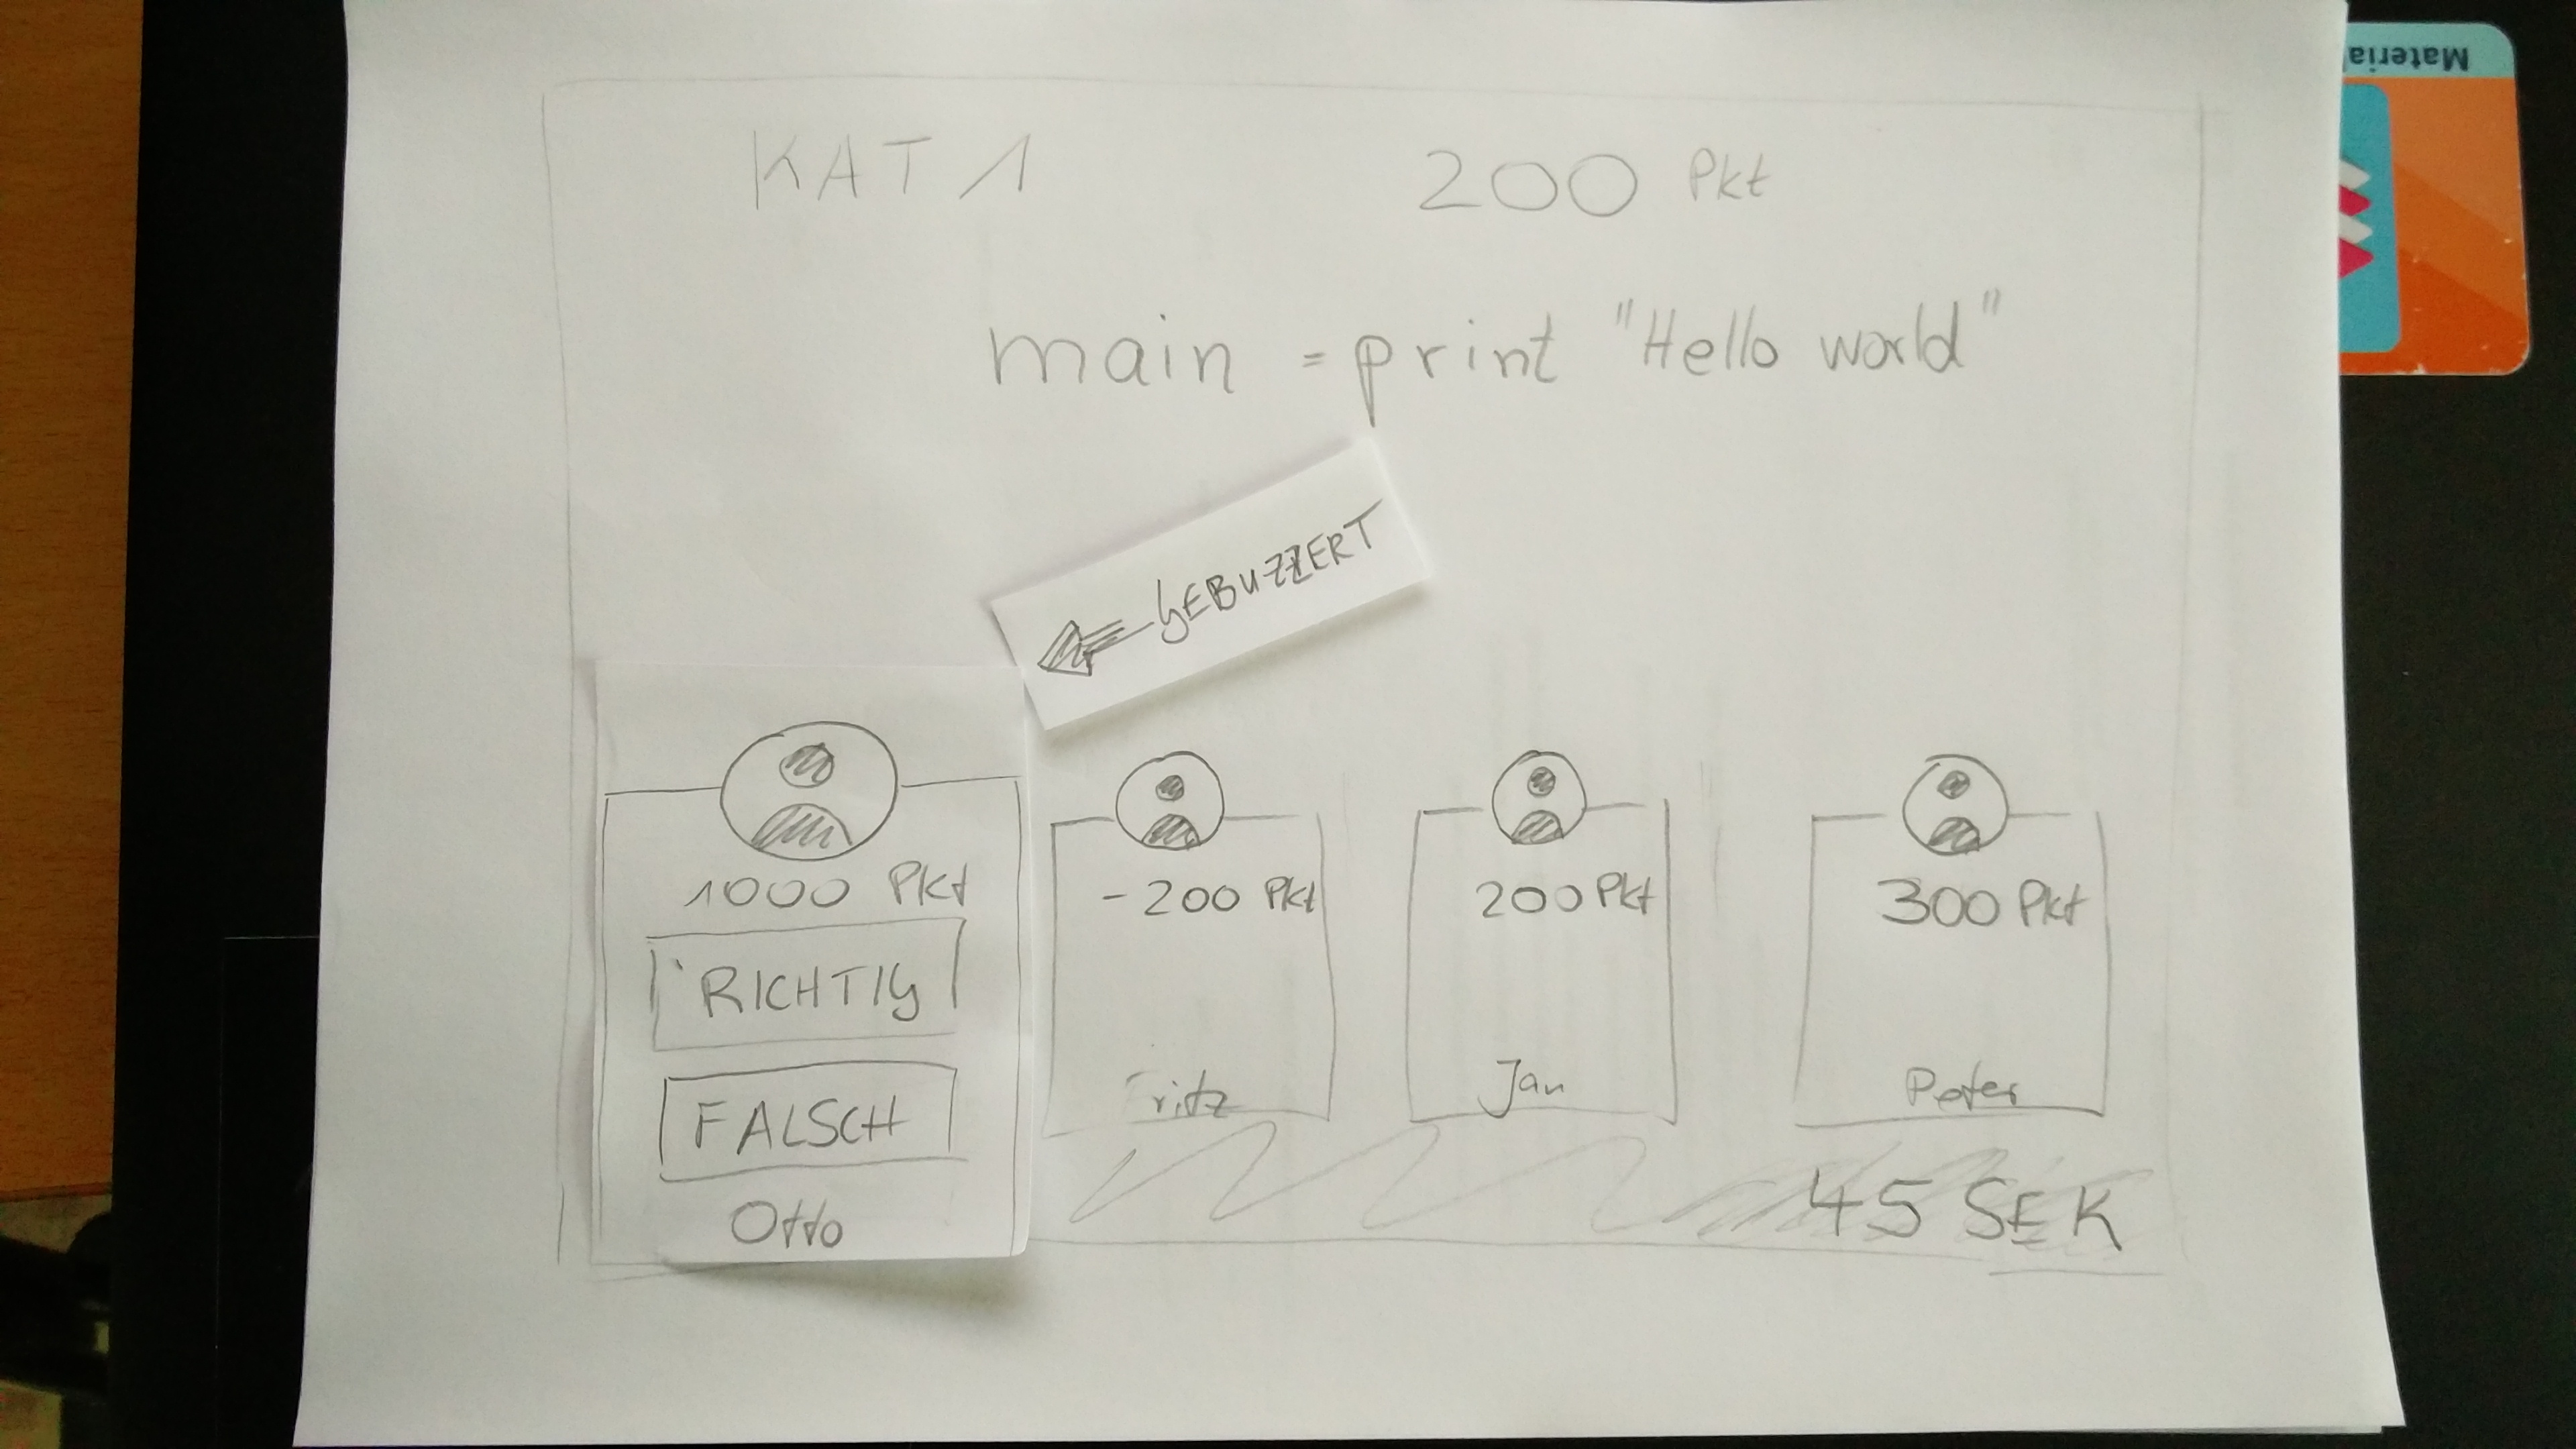 Materia
KAT 1
200 Pkt
main = print "Hello world"
GEBUZZERT
1000 Pkt
RICHTIG
FALSCH
Otto
-200 Pkt
Fritz
200 Pkt
Jan
300 Pkt
Peter
45 SEK